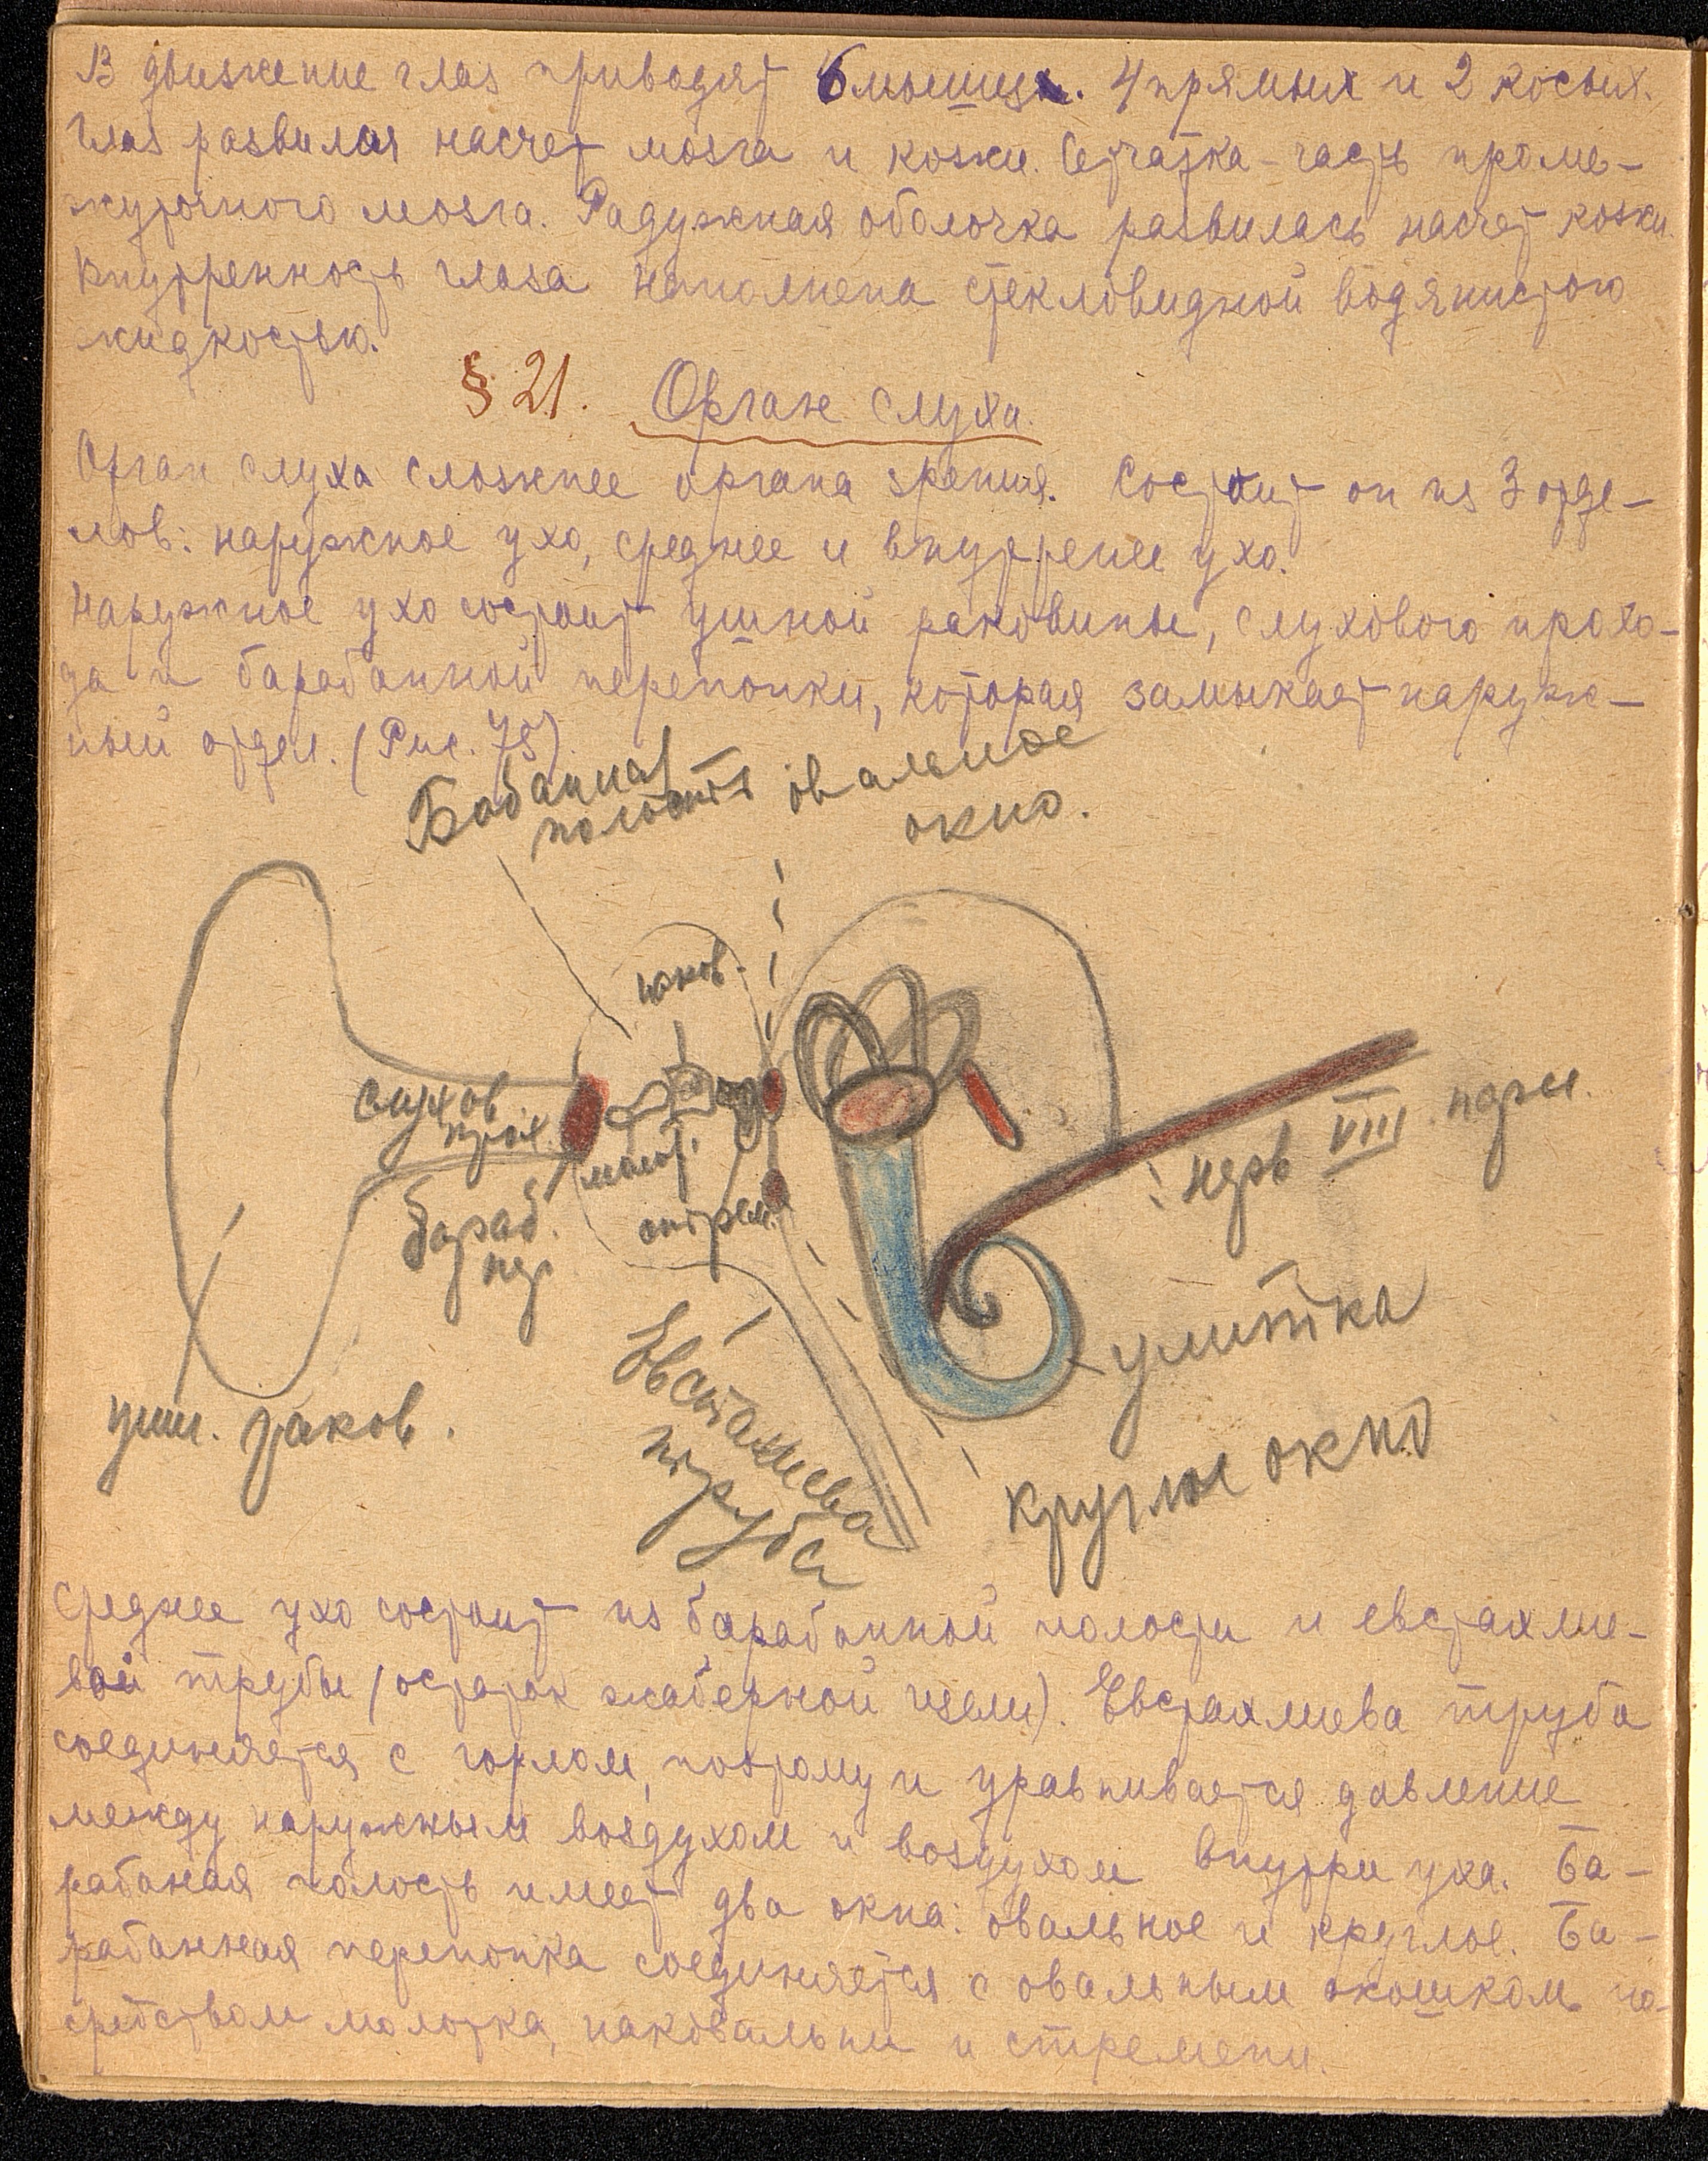 В движение глаз приводят 6 мышц. 4 прямых и 2 косых.
Глаз развился насчет мозга и кожи. Сетчатка – часть проме-
жуточного мозга. Радужная оболочка развилась насчет кожи.
Внутренность глаза наполнена стекловидной водянистою
жидкостью.
§ 21. Орган слуха.
Орган слуха сложнее органа зрения. Состоит он из 3 отде-
лов: наружное ухо, среднее и внутренее ухо.
Наружное ухо состоит ушной раковины, слухового прохо-
да и барабанной перепонки, которая замыкает наруж-
ный отдел. (Рис. 75).
Бабанная
полость
овальное
окно.
наков.
слухов
прох.
молот.
бараб.
пер
стрем.
нерв VIII пары.
улитка
уши. раков.
Евстахиева
труба
круглое окно
Среднее ухо состоит из барабанной полости и евстахие-
вой трубы (остаток жаберной щели). Евстахиева труба
соединяется с горлом, поэтому и уравнивается давление
между наружным воздухом и воздухом внутри уха. Ба-
рабаная полость имеет два окна: овальное и круглое. Ба-
рабанная перепонка соединяется с овальным окошком по-
средством молотка, наковальни и стремени.